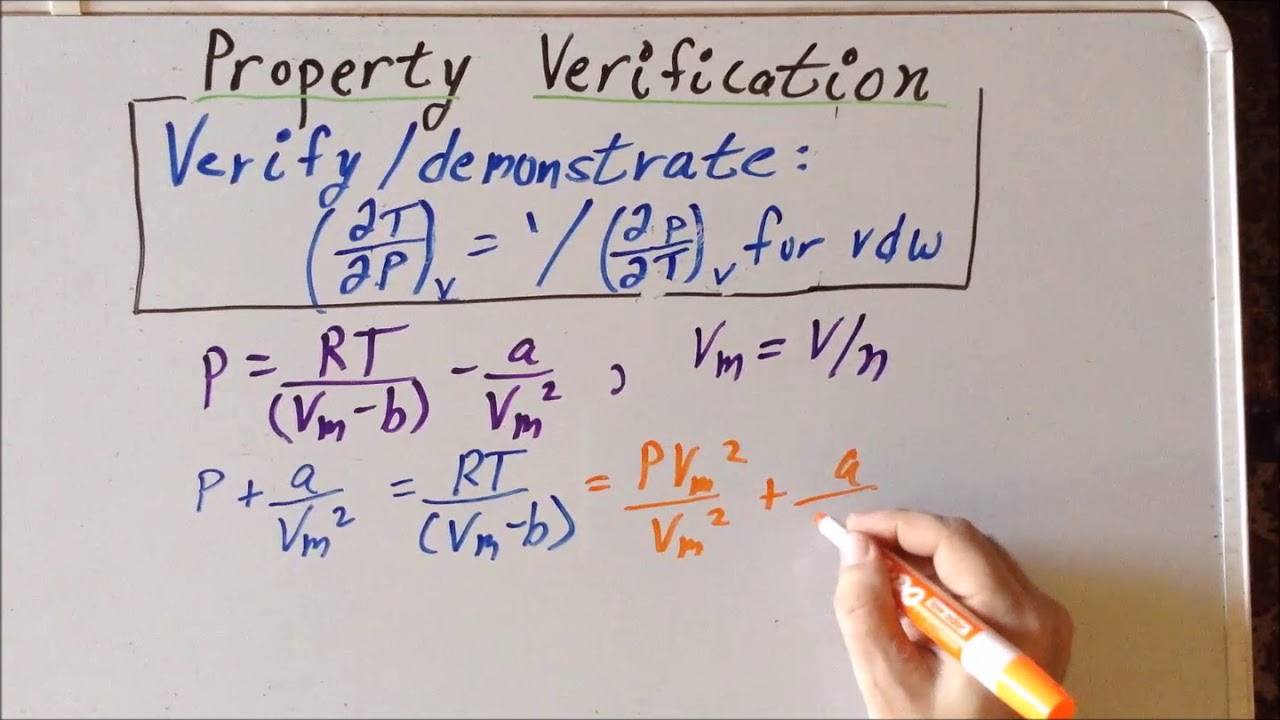 Property Verification
Verify/demonstrate:
(∂T/∂P)_V = 1/(∂P/∂T)_V for vdw
P = RT/(V_m - b) - a/V_m², V_m = V/n
P + a/V_m² = RT/(V_m - b) = PV_m²/V_m² + a